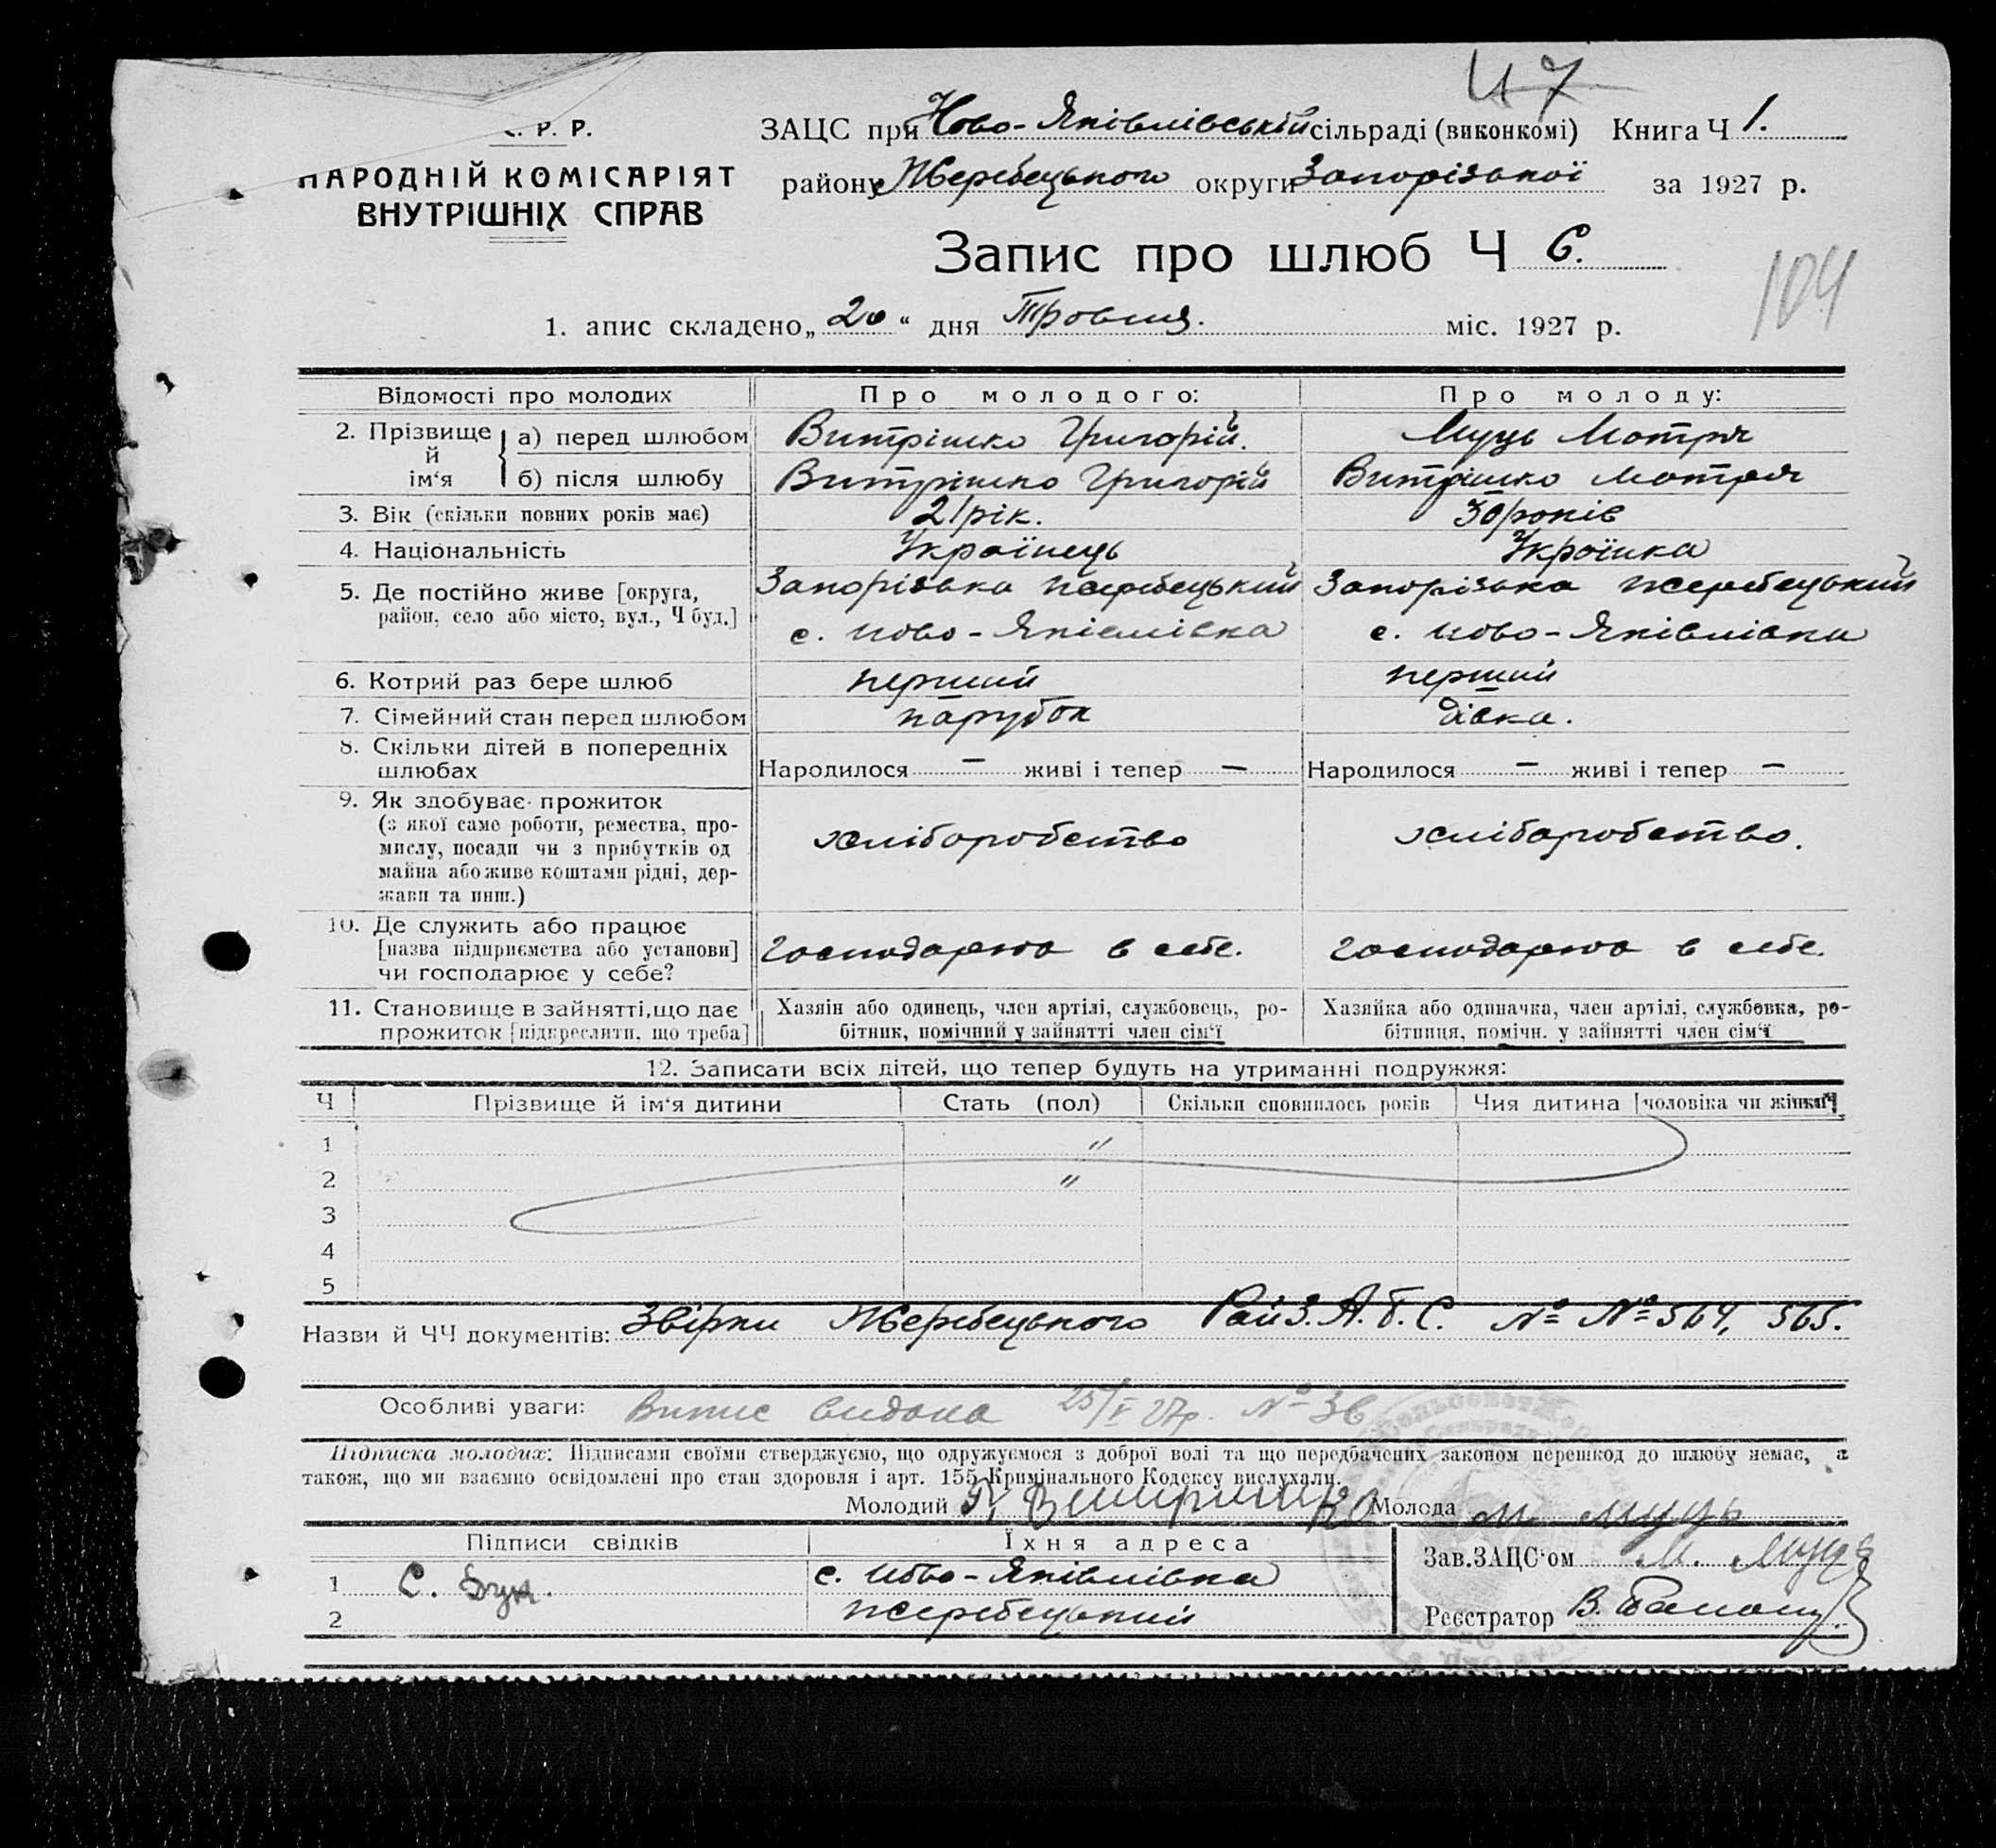 47
С. Р. Р.
НАРОДНІЙ КОМІСАРІЯТ
ВНУТРІШНІХ СПРАВ
ЗАЦС при Ново-Яківлівській сільраді (виконкомі) Книга Ч 1.
району Жеребецького округи Запорізької за 1927 р.
Запис про шлюб Ч 6.
104
1. апис складено „20“ дня Травня. міс. 1927 р.
Відомості про молодих Про молодого: Про молоду:
2. Прізвище й ім‘я а) перед шлюбом Витрішко Григорій. Муць Мотря
б) після шлюбу Витрішко Григорій Витрішко Мотря
3. Вік (скільки повних років має) 21 рік. 30 років
4. Національність Українець Українка
5. Де постійно живе [округа, Запорізька Жеребецький Запорізька Жеребецький
район, село або місто, вул., Ч буд.] с. Ново-Яківлівка с. Ново-Яківлівка
6. Котрий раз бере шлюб перший перший
7. Сімейний стан перед шлюбом парубок дівка.
8. Скільки дітей в попередніх
шлюбах Народилося – живі і тепер – Народилося – живі і тепер –
9. Як здобуває прожиток
(з якої саме роботи, ремества, про-
мислу, посади чи з прибутків од хліборобство хліборобство.
майна або живе коштами рідні, дер-
жави та инш.)
10. Де служить або працює
[назва підприємства або установи] господарюю в себе. господарюю в себе.
чи господарює у себе?
11. Становище в зайнятті, що дає Хазяін або одинець, член артілі, службовець, ро- Хазяйка або одиначка, член артілі, службовка, ро-
прожиток [підкреслити, що треба] бітник, помічний у зайнятті член сім‘ї бітниця, помічн. у зайнятті член сім‘ї
12. Записати всіх дітей, що тепер будуть на утриманні подружжя:
Ч Прізвище й ім‘я дитини Стать (пол) Скільки сповнилось років Чия дитина [чоловіка чи жінки]
1 "
2 "
3
4
5
Назви й ЧЧ документів: Звірки Жеребецького Рай З.А.Г.С. № № 564, 565.
Особливі уваги: Випис видана 25/V 27р. № 36
Підписка молодих: Підписами своїми стверджуємо, що одружуємося з доброї волі та що передбачених законом перешкод до шлюбу немає, а
також, що ми взаємно освідомлені про стан здоровля і арт. 155 Кримінального Кодексу вислухали.
Молодий Г. Витришко Молода М Муць
Підписи свідків Їхня адреса Зав. ЗАЦС‘ом М. Муць
1 С. Бук. с. Ново-Яківлівка
2 Жеребецький Реєстратор В.